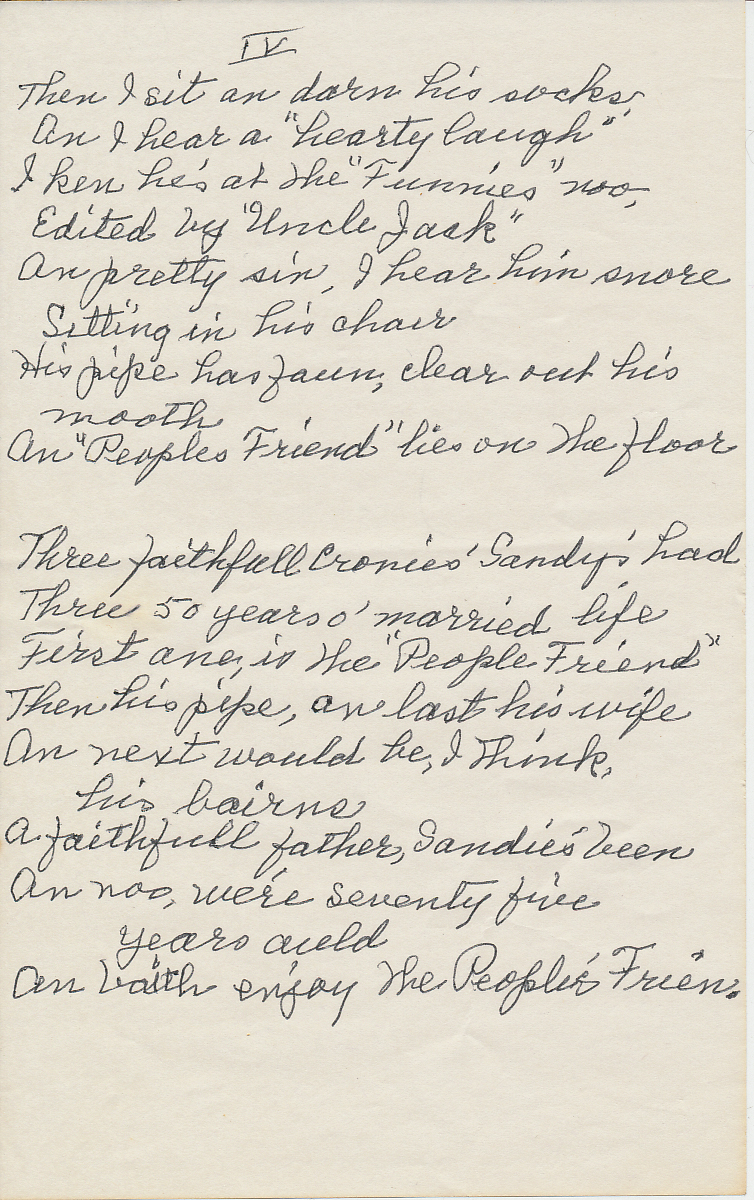 IV
Then I sit an darn his socks
An I hear a "hearty laugh"
I ken he's at the "Funnies" noo,
Edited by "Uncle Jack"
An pretty sin, I hear him snore
Sitting in his chair
His pipe has faun, clear out his
mooth
An "Peoples Friend" lies on the floor
Three faithfull Cronies' Sandy's had
Three 50 years o' married life
First ane, is the "People Friend"
Then his pipe, an last his wife
An next would be, I think,
his bairns
A faithfull father, Sandie's been
An noo, we're seventy five
years auld
An baith enjoy the People's Frien.